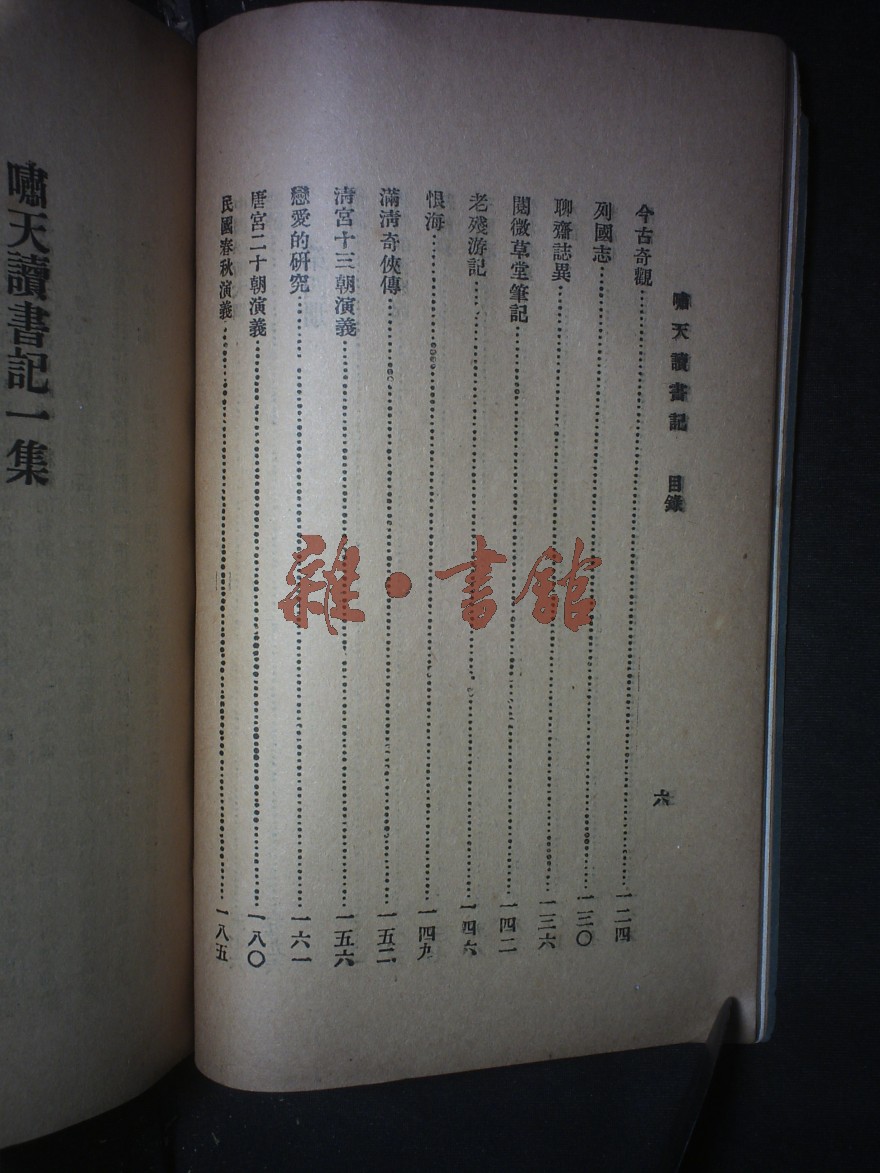 嘯天讀書記 目錄 六
今古奇觀…………一二四
列國志…………一三〇
聊齋誌異…………一三六
閱微草堂筆記…………一四二
老殘游記…………一四六
恨海…………一四九
滿淸奇俠傳…………一五二
淸宮十三朝演義…………一五六
戀愛的硏究…………一六一
唐宮二十朝演義…………一八〇
民國春秋演義…………一八五
嘯天讀書記一集
雜·書館